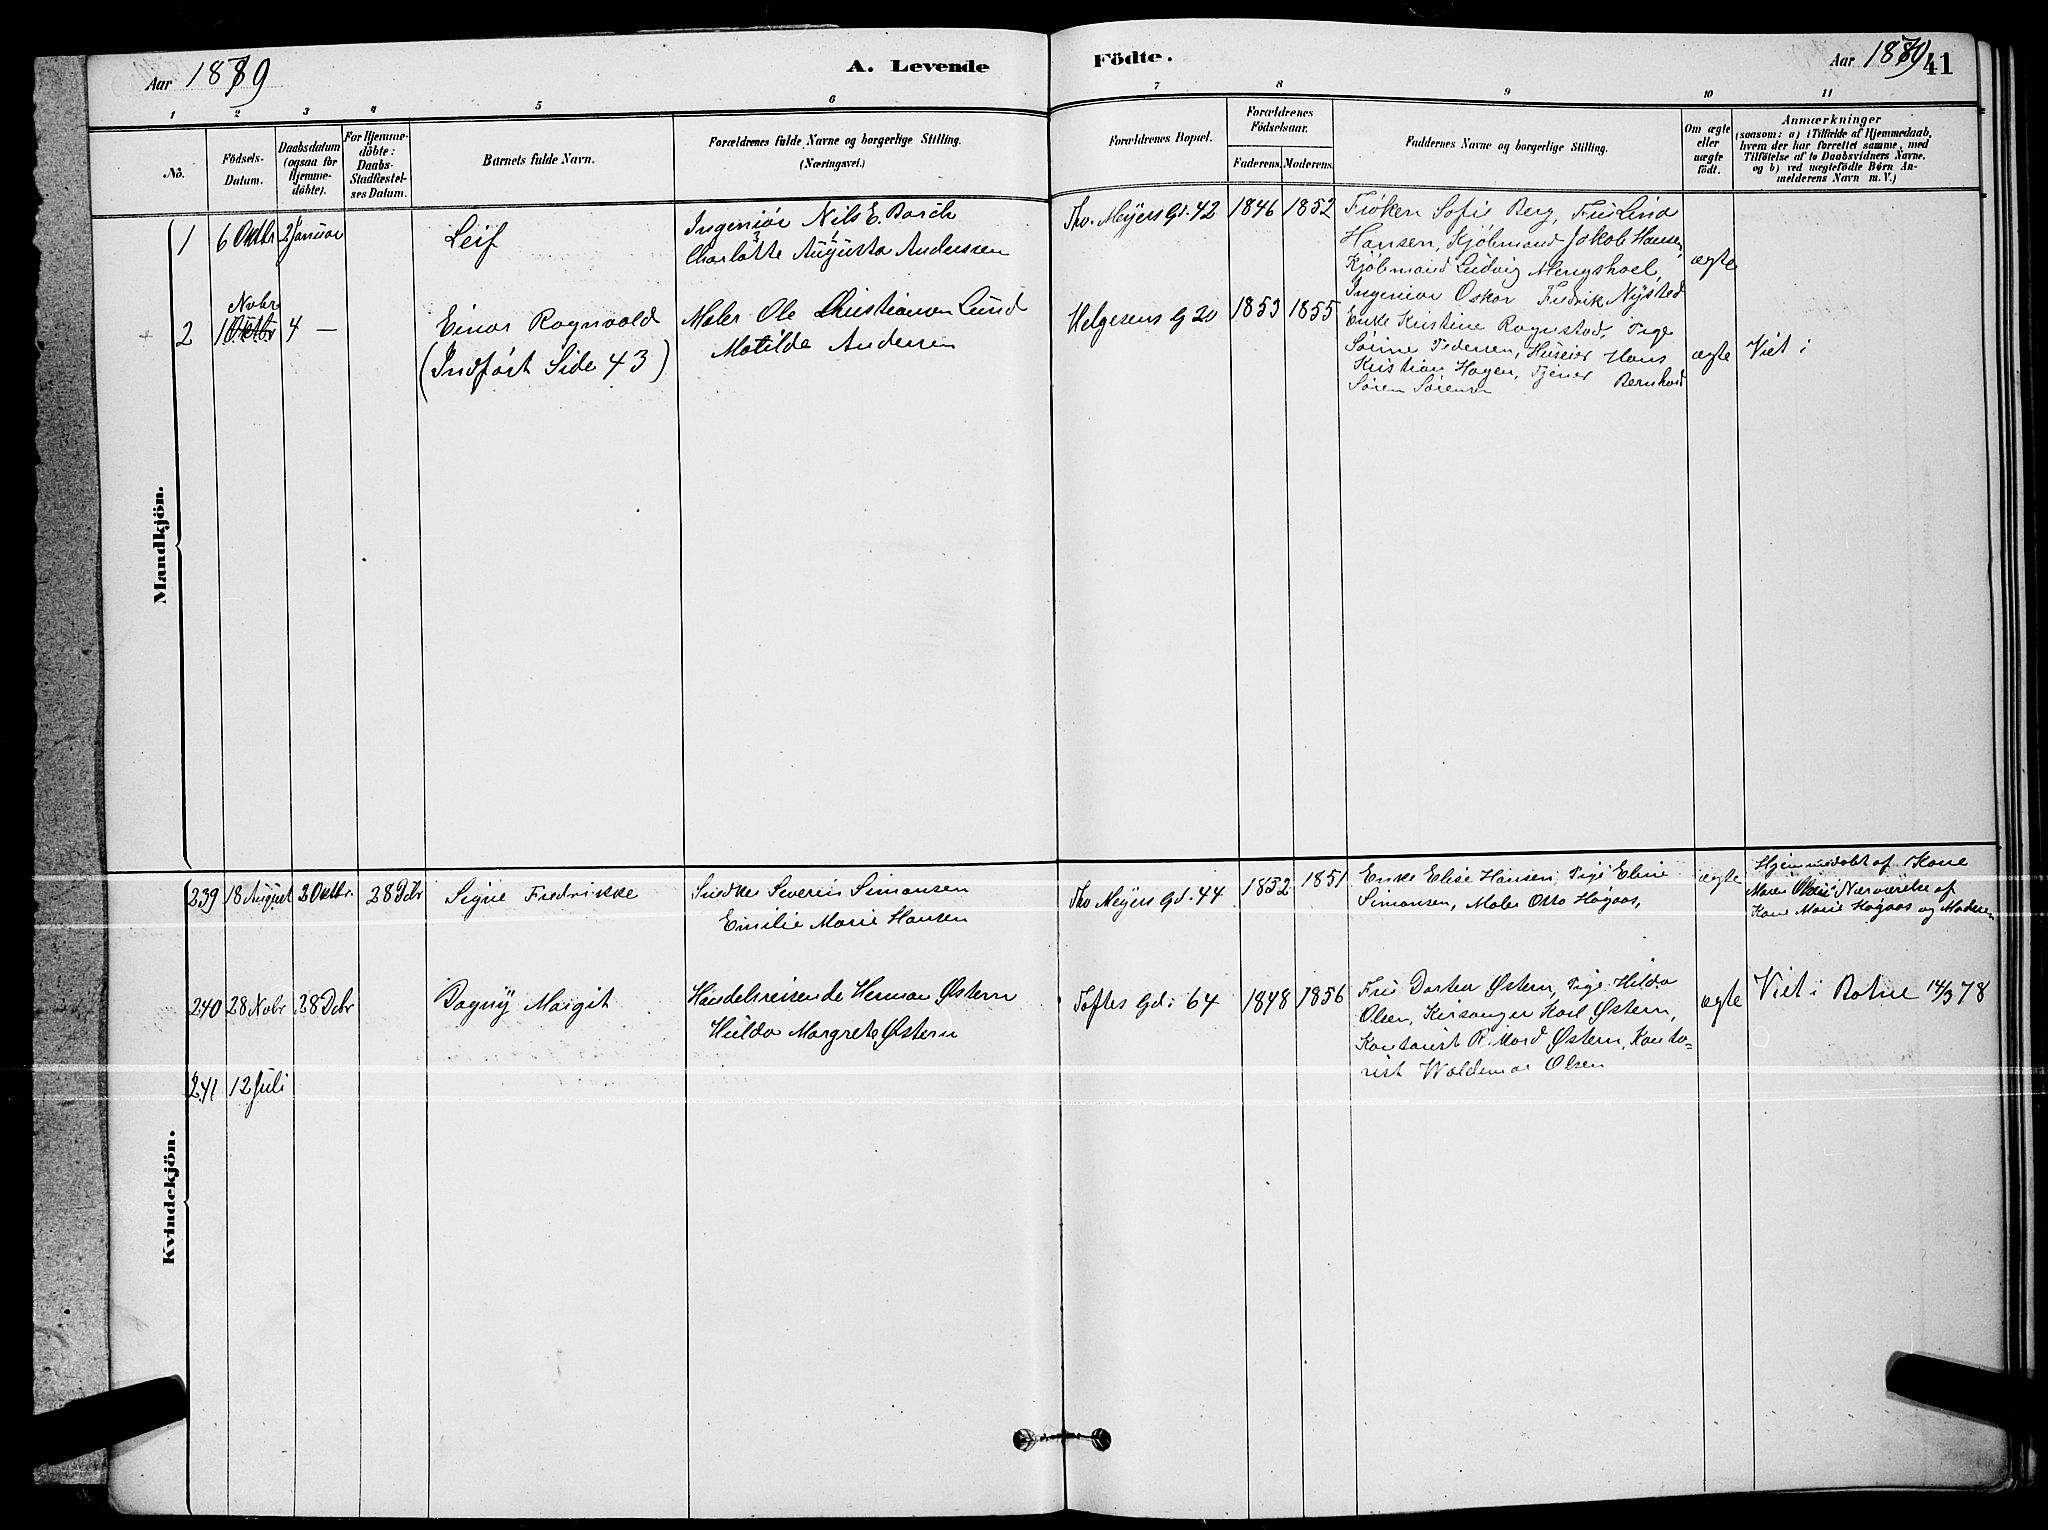 Aar 1879
A. Levende
Födte.
Aar 1879
41
1 2 3 4 5 6 7 8 9 10 11
No.
Födsels-
Datum.
Daabsdatum
(ogsaa for
Hjemme-
döbte).
For Hjemme-
döbte:
Daabs-
Stadfæstel-
ses Datum.
Barnets fulde Navn.
Forældrenes fulde Navne og borgerlige Stilling.
(Næringsvei.)
Forældrenes Bopæl.
Forældrenes
Födselsaar.
Faderens. Moderens.
Faddernes Navne og borgerlige Stilling.
Om ægte
eller
uægte
födt.
Anmærkninger
(saasom: a) i Tilfælde af Hjemmedaab,
hvem der har forrettet samme, med
Tilföielse af to Daabsvidners Navne.
og b) ved uægtefödte Børn An-
melderens Navn m. V.)
Mandkjön.
1 6 Oktbr 2 Januar
Leif
Ingeniör Nils E. Borch
Charlotte Augusta Anderssen
Thv. Meyers Gd. 42 1846 1852
Frøken Sofie Berg, Fru Lina
Hansen, Kjøbmand Jakob Hansen,
Kjøbmand Ludvig Mengshoel,
Ingeniør Oskar Fredrik Nysted
ægte
Novbr
2 1 Oktbr 4 —
Einar Ragnvald
(Indført Side 43)
Maler Ole Christiansen Lund
Matilde Andersen
Helgesens G 20 1853 1855
Enke Kristine Rognstad, Pige
Sørine Pedersen, Huseier Hans
Kristian Hagen, Tjener Bernhard
Søren Sørensen
ægte
Viet i
Kvindekjön.
239 18 August 2 Oktbr. 28 Dcbr
Signe Fredrikke
Snedker Severin Simonsen
Emilie Marie Hansen
Thv Meyers Gd. 44 1852 1851
Enke Elise Hansen, Pige Eline
Simonsen, Maler Otto Høgaas,
ægte
Hjemmedøbt af Kone
Maren Olsen i Nærværelse af
Kone Marie Høgaas og Moderen
240 28 Novbr 28 Dcbr
Dagny Margit
Handelsreisende Herman Østern
Hulda Margrete Østern
Toftes Gd. 64 1848 1856
Fru Dortea Østern, Pige Hilda
Olsen, Kirsanger Karl Østern,
Kontorist Rikard Østern, Konto-
rist Waldemar Olsen
ægte
Viet i Botne 14/3 78
241 12 Juli